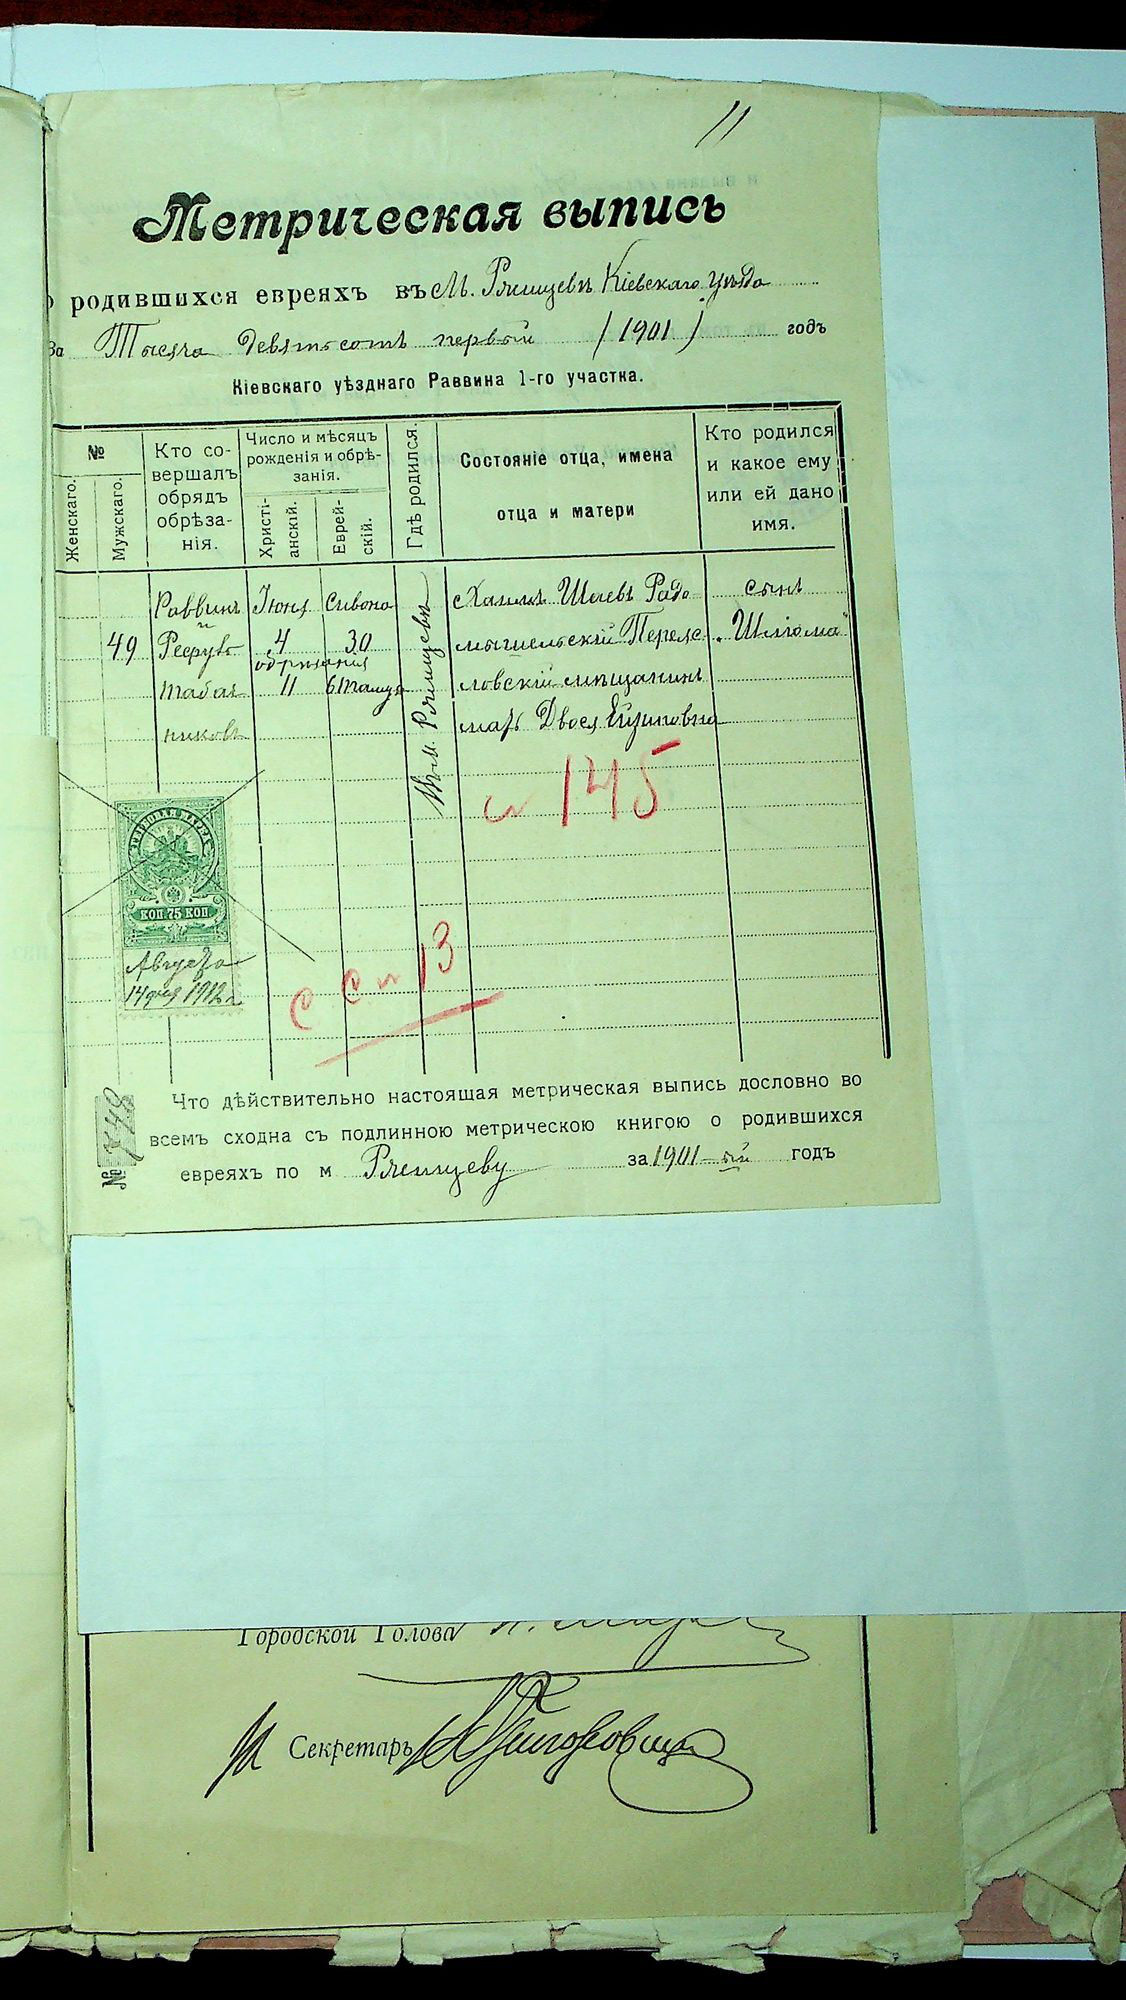 11
Метрическая выпись
о родившихся евреяхъ въ М. Ржищевѣ Кіевскаго уѣзда
За Тысяча девятьсотъ первый (1901) годъ
Кіевскаго уѣзднаго Раввина 1-го участка.
№
Женскаго.
Мужскаго.
Кто со-
вершалъ
обрядъ
обрѣза-
нія.
Число и мѣсяцъ
рожденія и обрѣ-
занія.
Христі-
анскій.
Еврей-
скій.
Гдѣ родился.
Состояніе отца, имена
отца и матери
Кто родился
и какое ему
или ей дано
имя.
49
Раввинъ
и
табач
никовъ
Іюня
4
обрѣзанія
11
Сивона
30
6 Тамуза
Въ м. Ржищевѣ
Хаимъ Шаевъ Радо
мысельскій Переяс
ловскій мѣщанинъ
мать Двося
сынъ
„Шлiома"
145
13
ГЕРБОВАЯ МАРКА
КОП 75 КОП
Августа
14 дня 1912 г.
№ 748
Что дѣйствительно настоящая метрическая выпись дословно во
всемъ сходна съ подлинною метрическою книгою о родившихся
евреяхъ по м Ржищеву за 1901-ый годъ
Городской Голова
Секретарь